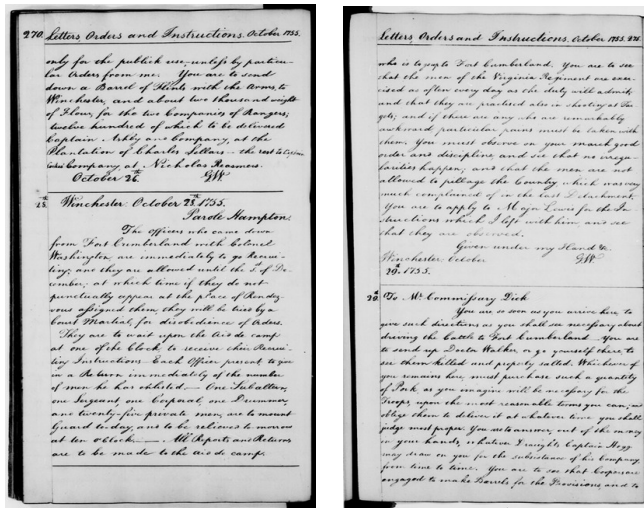 270. Letters, Orders and Instructions. October 1755.
only for the publick use, unless by particu-
lar Orders from me. You are to send
down a Barrel of Flints with the Arms, to
Winchester, and about two thousand weight
of Flour, for the two Companies of Rangers;
twelve hundred of which to be delivered
Captain Ashby and Company, at the
Plantation of Charles Sellars — the rest to Captain
Cocks Company, at Nicholas Reasmers.
October 26. GW
28. Winchester October 28th 1755.
Parole Hampton.
The Officers who came down
from Fort Cumberland with Colonel
Washington, are immediately to go Recrui-
ting; and they are allowed until the 1st. of De-
cember; at which time if they do not
punctually appear at the place of Rendez-
vous assigned them, they will be tried by a
Court Martial, for disobedience of Orders.
They are to wait upon the Aid de camp
at one of the Clock, to receive their Recrui-
ting Instructions. Each Officer present, to give
in a Return immediately of the number
of men he has enlisted. — One Subaltern,
one Sergeant, one Corporal, one Drummer,
and twenty-five private men, are to mount
Guard to day, and to be relieved to morrow
at ten oClock. — All Reports and Returns
are to be made to the Aid de camp.
Letters, Orders and Instructions. October 1755. 271.
who is to go to Fort Cumberland. You are to see
that the men of the Virginia Regiment are exer-
cised as often every day as the duty will admit
and that they are practised also in shooting at Tar
gets; and if there are any who are remarkably
awkward, particular pains must be taken with
them. You must observe on your march good
order and discipline, and see that no irregu
larities happen; and that the men are not
allowed to pillage the Country, which was very
much complained of in the last Detachment.
You are to apply to Major Lewis for the In
structions which I left with him, and see
that they are observed.
Given under my Hand &c
Winchester October GW
29th 1755.
29. To Mr. Commissary Dick
You are so soon as you arrive here, to
give such directions as you shall see necessary about
driving the Cattle to Fort Cumberland. You are
to send up Doctor Walker, or go yourself there, to
see them killed and properly salted. Whichever of
you remains here, must purchase such a quantity
of Pork as you imagine will be necessary for the
Troops, upon the most reasonable terms you can; and
oblige them to deliver it at whatever time you shall
judge most proper. You are to answer, out of the money
in your hands, whatever Draughts Captain Hogg
may draw on you for the subsistance of his Company,
from time to time. You are to see that Coopers are
engaged to make Barrels for the Provisions, and to